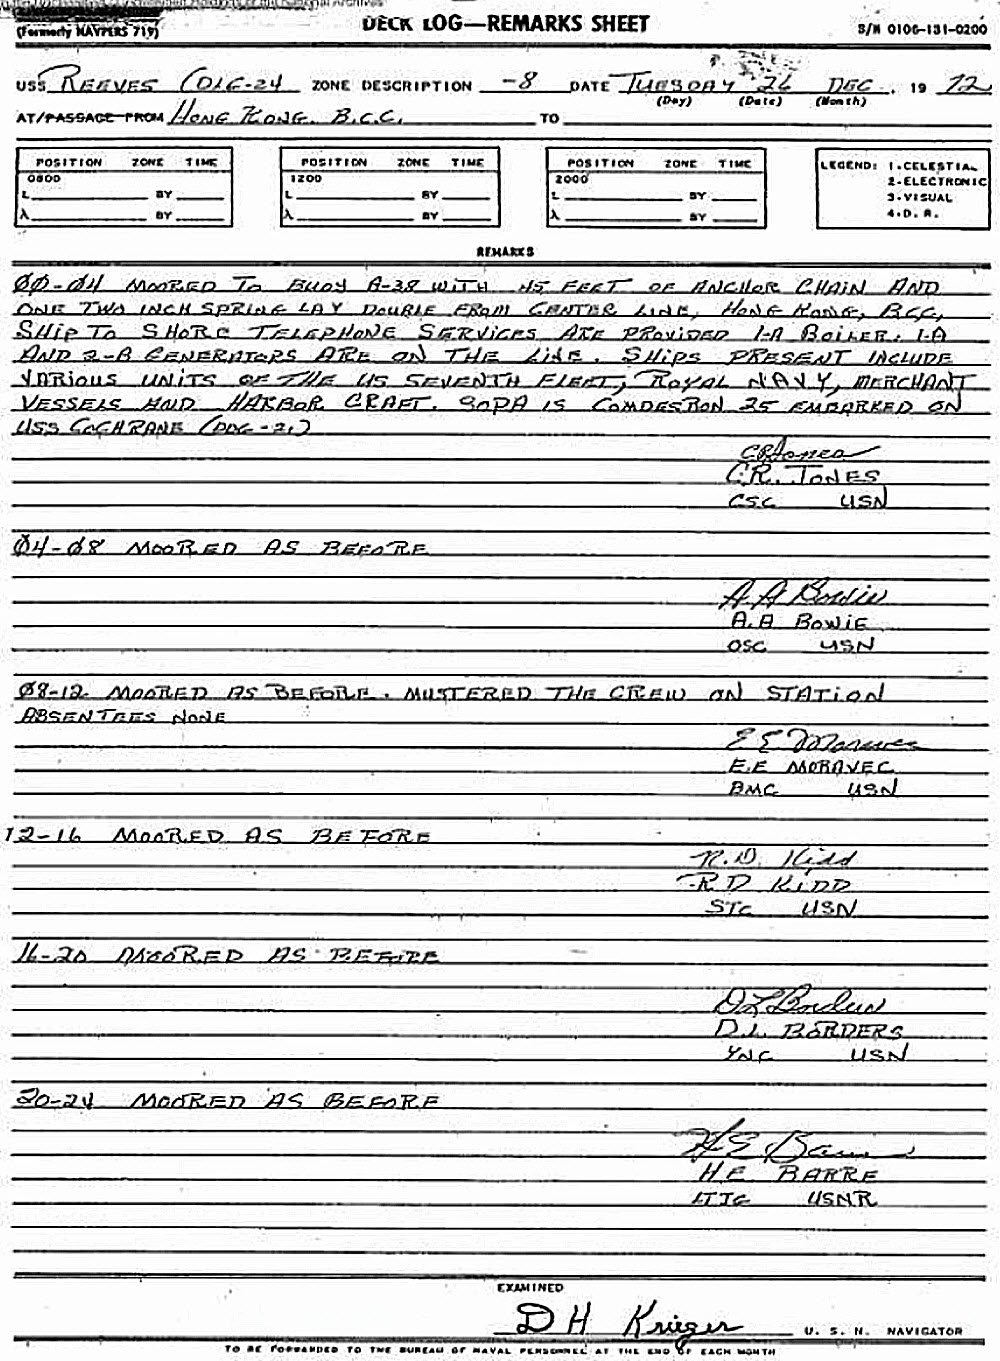 (Formerly NAVPERS 719)
DECK LOG—REMARKS SHEET
S/N 0106-131-0200
USS REEVES (DLG-24 ZONE DESCRIPTION -8 DATE TUESDAY 26 DEC. 19 72
(Day) (Date) (Month)
AT/PASSAGE FROM HONG KONG. B.C.C. TO
POSITION ZONE TIME
0800
L BY
λ BY
POSITION ZONE TIME
1200
L BY
λ BY
POSITION ZONE TIME
2000
L BY
λ BY
LEGEND: 1-CELESTIAL
2-ELECTRONIC
3-VISUAL
4-D. R.
REMARKS
00-04 MOORED TO BUOY A-38 WITH 45 FEET OF ANCHOR CHAIN AND
ONE TWO INCH SPRING LAY DOUBLE FROM CENTER LINE, HONG KONG, BCC,
SHIP TO SHORE TELEPHONE SERVICES ARE PROVIDED 1-A BOILER, 1-A
AND 2-B GENERATORS ARE ON THE LINE. SHIPS PRESENT INCLUDE
VARIOUS UNITS OF THE US SEVENTH FLEET, ROYAL NAVY, MERCHANT
VESSELS AND HARBOR CRAFT. SOPA IS COMDESRON 25 EMBARKED ON
USS COCHRANE (DDG-21)
CR Jones
C.R. JONES
CSC USN
04-08 MOORED AS BEFORE
A A Bowie
A.A BOWIE
OSC USN
08-12 MOORED AS BEFORE. MUSTERED THE CREW ON STATION
ABSENTEES NONE
E E Moravec
E.E MORAVEC
BMC USN
12-16 MOORED AS BEFORE
R. D. Kidd
R D KIDD
STC USN
16-20 MOORED AS BEFORE
D L Borders
D.L. BORDERS
YNC USN
20-24 MOORED AS BEFORE
H E Barre
H.E. BARRE
LTJG USNR
EXAMINED
D H Krieger U. S. N. NAVIGATOR
TO BE FORWARDED TO THE BUREAU OF NAVAL PERSONNEL AT THE END OF EACH MONTH